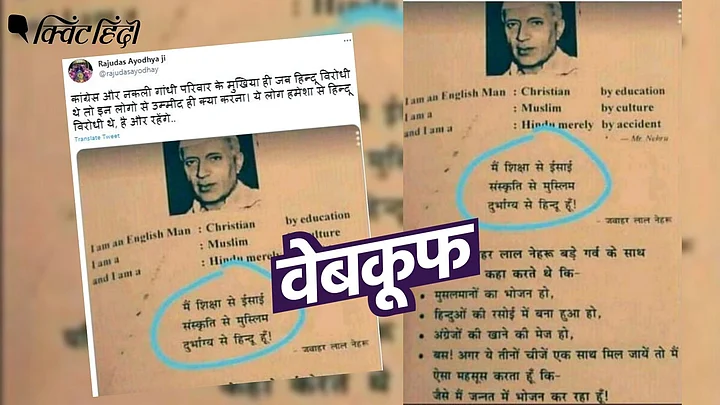 क्विंट हिंदी
Rajudas Ayodhya ji
@rajudasayodhay
कांग्रेस और नकली गांधी परिवार के मुखिया ही जब हिन्दू विरोधी
थे तो इन लोगो से उम्मीद ही क्या करना। ये लोग हमेशा से हिन्दू
विरोधी थे, है और रहेंगे..
Translate Tweet
I am an English Man : Christian by education
I am a : Muslim culture
and I am a : Hindu merel
मैं शिक्षा से ईसाई
संस्कृति से मुस्लिम
दुर्भाग्य से हिन्दू हूँ!
- जवाहर लाल नेहरू
वेबकूफ
I am an English Man : Christian by education
I am a : Muslim by culture
and I am a : Hindu merely by accident
- Mr. Nehru
मैं शिक्षा से ईसाई
संस्कृति से मुस्लिम
दुर्भाग्य से हिन्दू हूँ!
- जवाहर लाल नेहरू
हर लाल नेहरू बड़े गर्व के साथ
कहा करते थे कि-
• मुसलमानों का भोजन हो,
• हिन्दुओं की रसोई में बना हुआ हो,
• अंग्रेजों की खाने की मेज हो,
• बस! अगर ये तीनों चीजें एक साथ मिल जायें तो मैं
ऐसा महसूस करता हूँ कि-
जैसे मैं जन्नत में भोजन कर रहा हूँ!